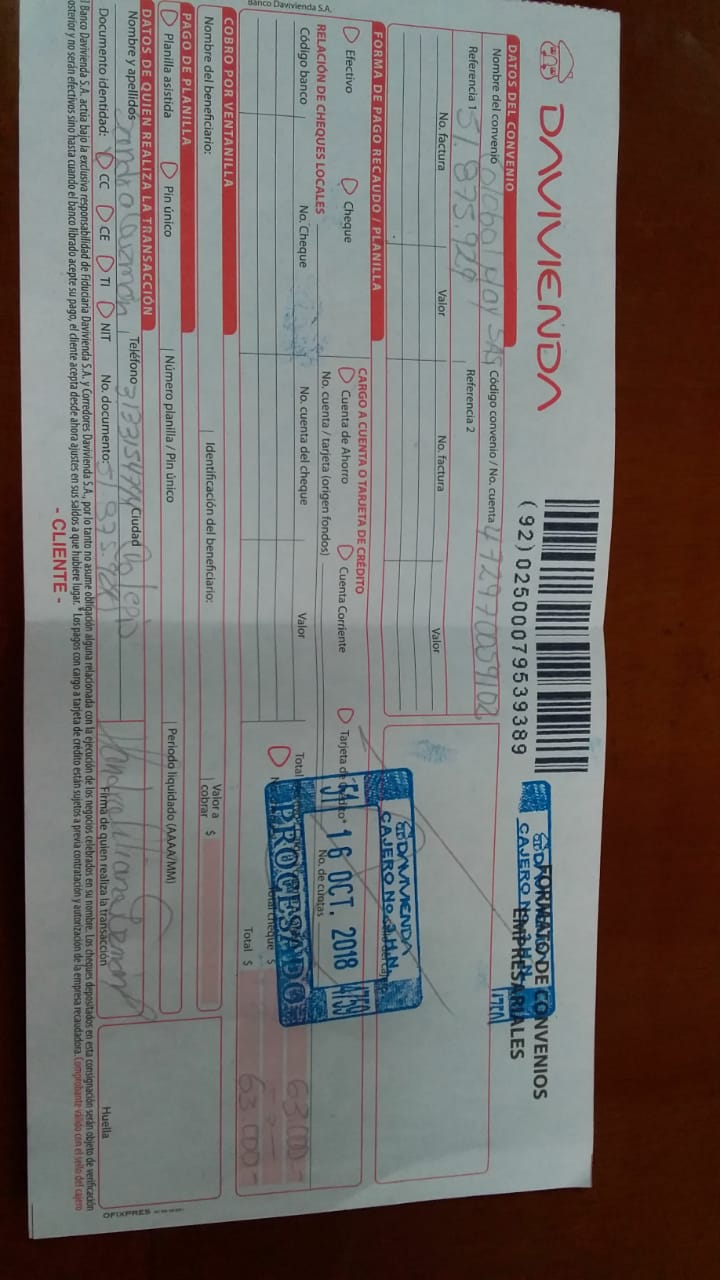 DAVIVIENDA
(92)02500079539389
FORMATO DE CONVENIOS
EMPRESARIALES
DAVIVIENDA
CAJERO No.
DATOS DEL CONVENIO
Nombre del convenio Global SAS Código convenio / No. cuenta
Referencia 1 51.875.929 Referencia 2
No. factura Valor No. factura Valor
FORMA DE PAGO RECAUDO / PLANILLA
Efectivo Cheque
CARGO A CUENTA O TARJETA DE CRÉDITO
Cuenta de Ahorro Cuenta Corriente Tarjeta de Crédito*
No. cuenta / tarjeta (origen fondos) No. de cuotas
DAVIVIENDA
CAJERO No.
51 16 OCT. 2018 4759
PROCESADO
RELACIÓN DE CHEQUES LOCALES
Código banco No. Cheque No. cuenta del cheque Valor
Total 63 000-
Total cheque $
Total $ 63 000-
COBRO POR VENTANILLA
Nombre del beneficiario: Identificación del beneficiario: Valor a cobrar $
PAGO DE PLANILLA
Planilla asistida Pin único Número planilla / Pin único Periodo liquidado (AAAA/MM)
DATOS DE QUIEN REALIZA LA TRANSACCIÓN
Nombre y apellidos Sandra Guzman Teléfono Ciudad
Documento identidad: CC CE TI NIT No. documento: Firma de quien realiza la transacción Huella
Banco Davivienda S.A. actúa bajo la exclusiva responsabilidad de Fiduciaria Davivienda S.A. y Corredores Davivienda S.A., por lo tanto no asume obligación alguna relacionada con la ejecución de los negocios celebrados en su nombre. Los cheques depositados en esta consignación serán objeto de verificación
posterior y no serán efectivos sino hasta cuando el banco librado acepte su pago, el cliente acepta desde ahora ajustes en sus saldos a que hubiere lugar. *Los pagos con cargo a tarjeta de crédito están sujetos a previa contratación y autorización de la empresa recaudadora. Comprobante válido con el sello del cajero
- CLIENTE -
OFIXPRES
Banco Davivienda S.A.